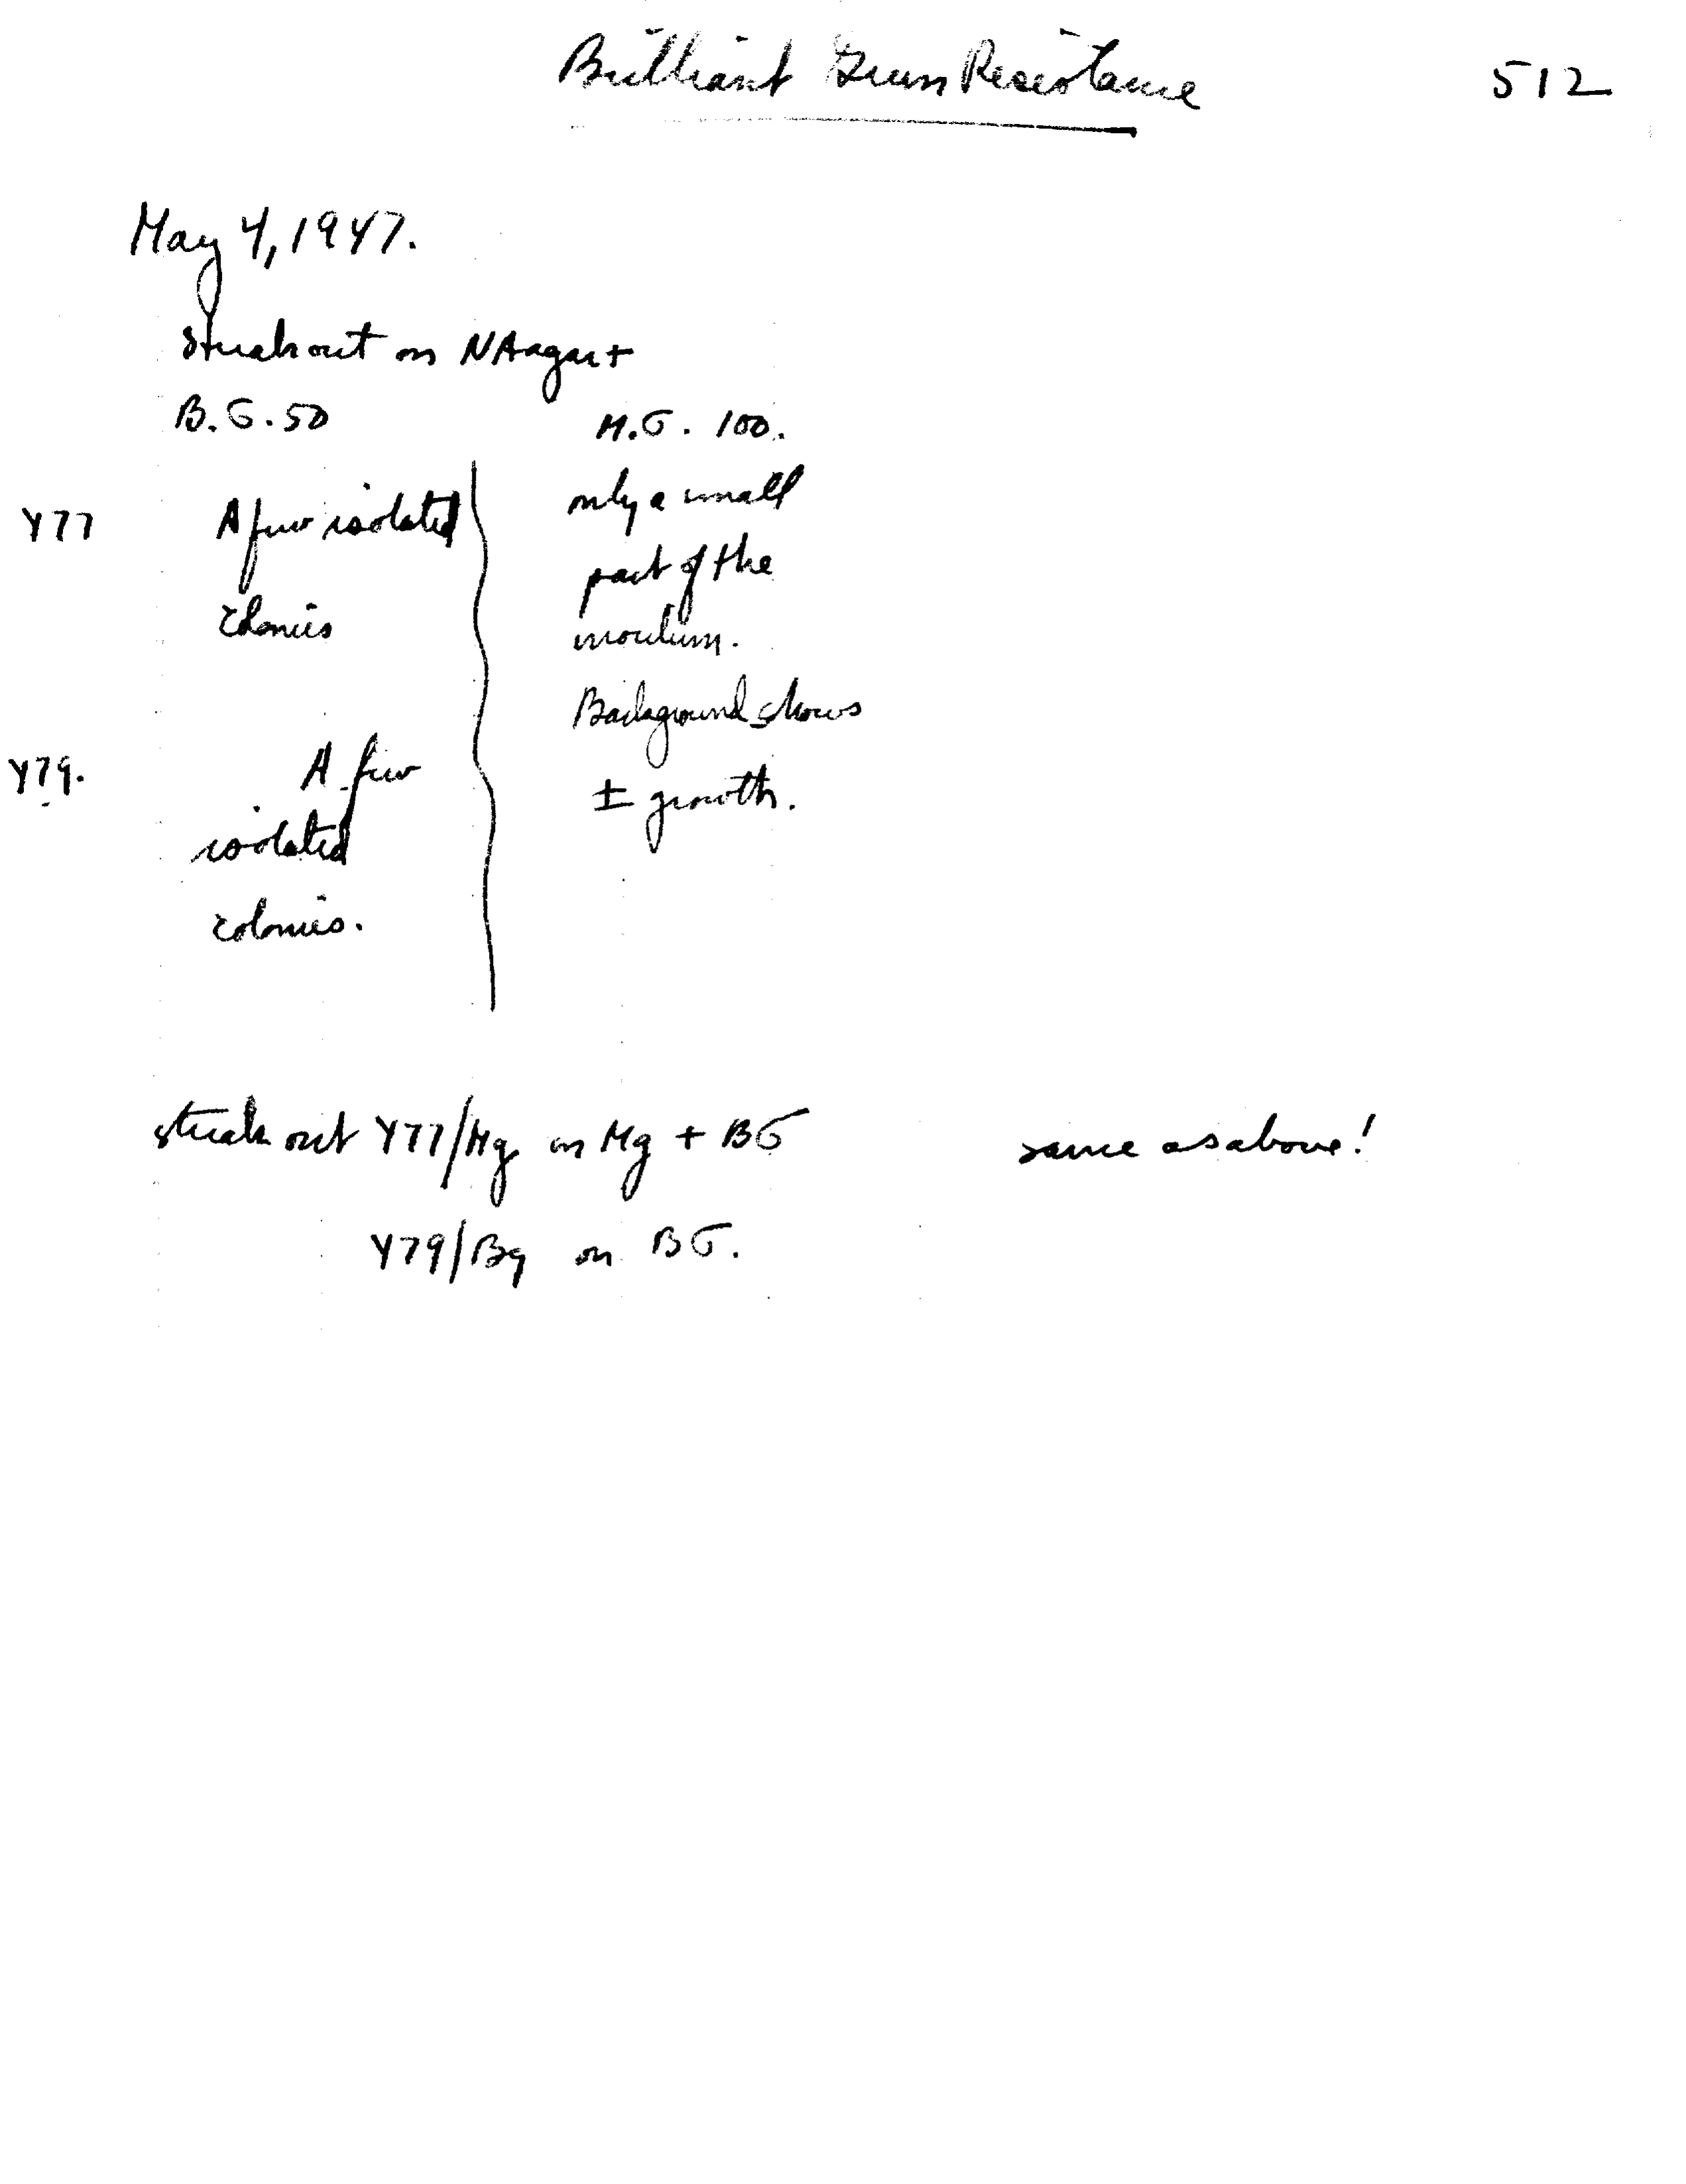 Brilliant Green Resistance
512
May 4, 1947.
Streak out on NA agar +
B.G. 50
M.G. 100.
Y77
A few isolated
colonies
only a small
part of the
inoculum.
Background shows
± growth.
Y79.
A few
isolated
colonies.
streak out Y77/Mg on Mg + BG
same as above!
Y79/Bg on BG.